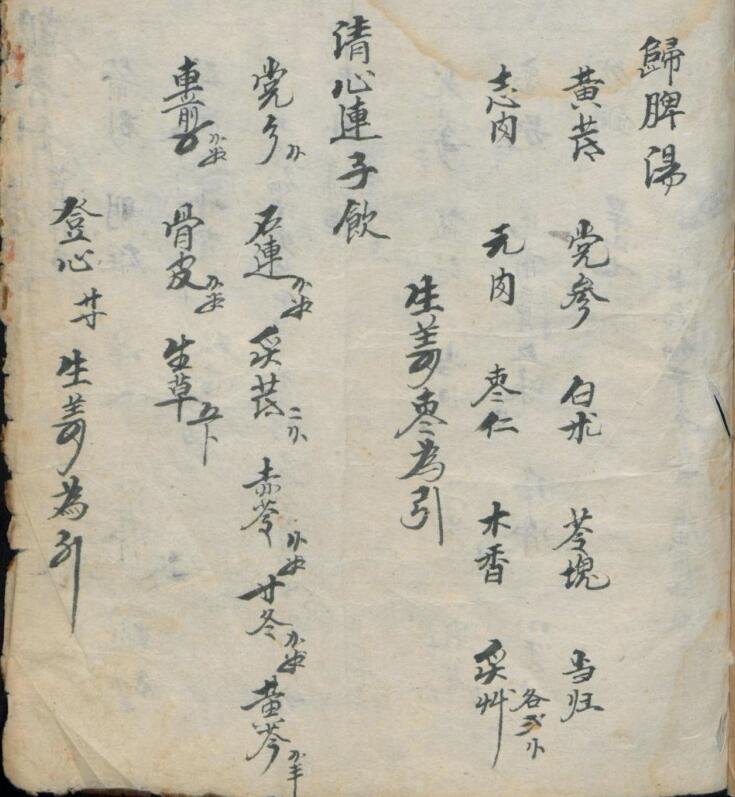 歸脾湯
黃芪 党參 白朮 苓塊 当归
志肉 元肉 枣仁 木香 炙艸 各
生姜枣為引
清心連子飲
党 石連 炙芪 二 赤苓 寸冬 黄芩
車前 骨皮 生草 五卜
登心 廿寸 生姜為引